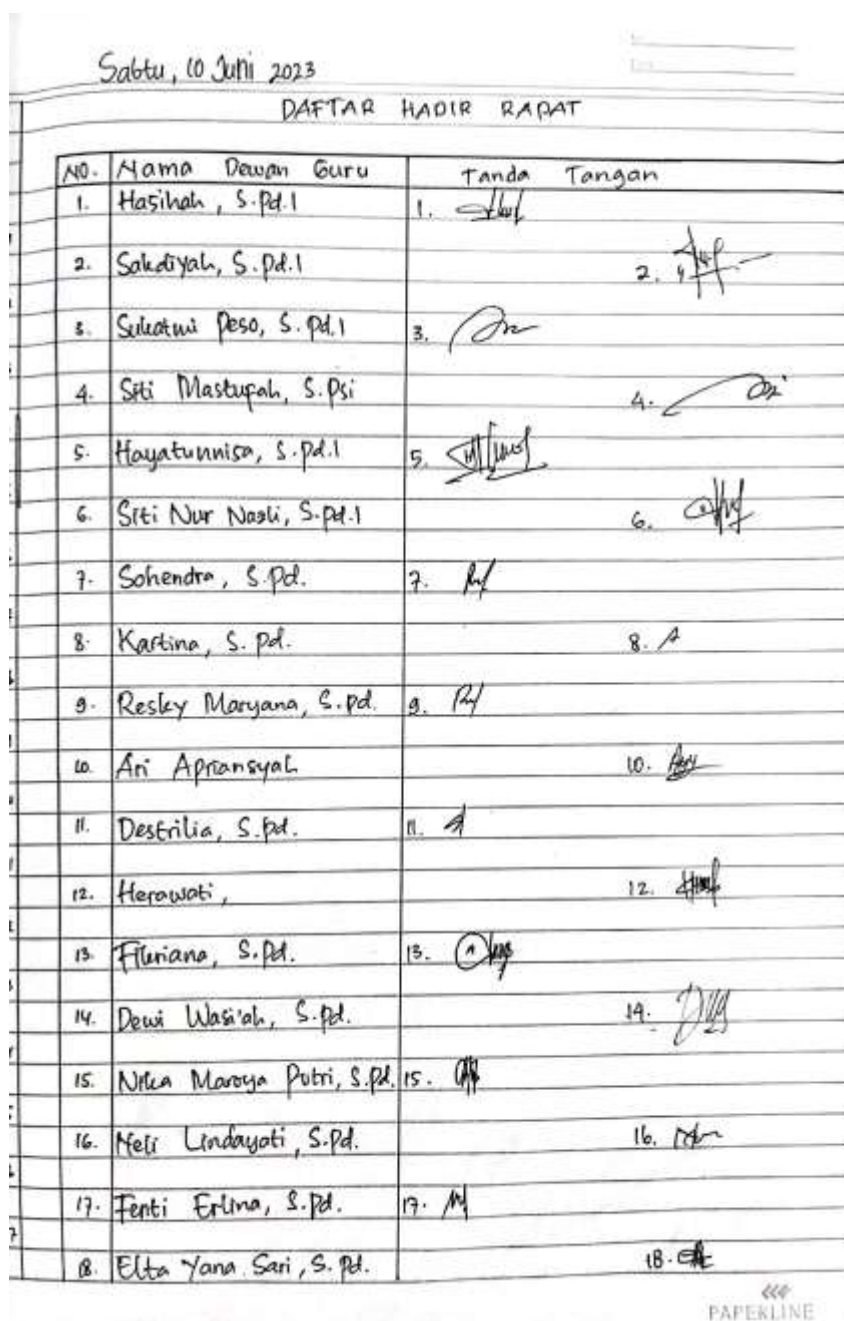 Sabtu, 10 Juni 2023
DAFTAR HADIR RAPAT
NO. Nama Dewan Guru Tanda Tangan
1. Hasihah, S.Pd.I 1.
2. Sakdiyah, S.Pd.I 2.
3. Sukatmi Peso, S.Pd.I 3.
4. Siti Mastufah, S.Psi 4.
5. Hayatunnisa, S.Pd.I 5.
6. Siti Nur Nazli, S.Pd.I 6.
7. Sohendra, S.Pd. 7.
8. Kartina, S.Pd. 8.
9. Resky Maryana, S.Pd. 9.
10. Ari Apriansyah 10.
11. Destrilia, S.Pd. 11.
12. Herawati, 12.
13. Fikriana, S.Pd. 13.
14. Dewi Wasi'ah, S.Pd. 14.
15. Nika Maroya Putri, S.Pd. 15.
16. Neli Lindayati, S.Pd. 16.
17. Fenti Erlina, S.Pd. 17.
18. Elta Yana Sari, S.Pd. 18.
PAPERLINE